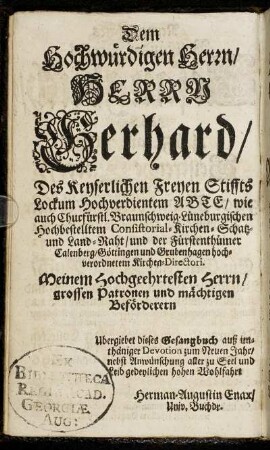 Dem
Hochwürdigen Herrn/
HERRN
Gerhard/
Des Keyserlichen Freyen Stiffts
Lockum Hochverdientem ABTE/ wie
auch Churfürstl. Braunschweig-Lüneburgischen
Hochbestelltem Consistorial-Kirchen-Schatz-
und Land-Raht/ und der Fürstenthümer
Calenberg/Göttingen und Grubenhagen hoch-
verordnetem Kirchen-Directori.
Meinem Hochgeehrtesten Herrn/
grossen Patronen und mächtigen
Beförderern
Ubergiebet dieses Gesangbuch auß un-
thäniger Devotion zum Neuen Jahr/
nebst Anwünschung aller zu Seel und
Leib gedeylichen hohen Wohlfahrt
Herman-Augustin Enax/
Univ. Buchdr.
EX
BIBLIOTHECA
REGIA ACAD.
GEORGIÆ
AUG: